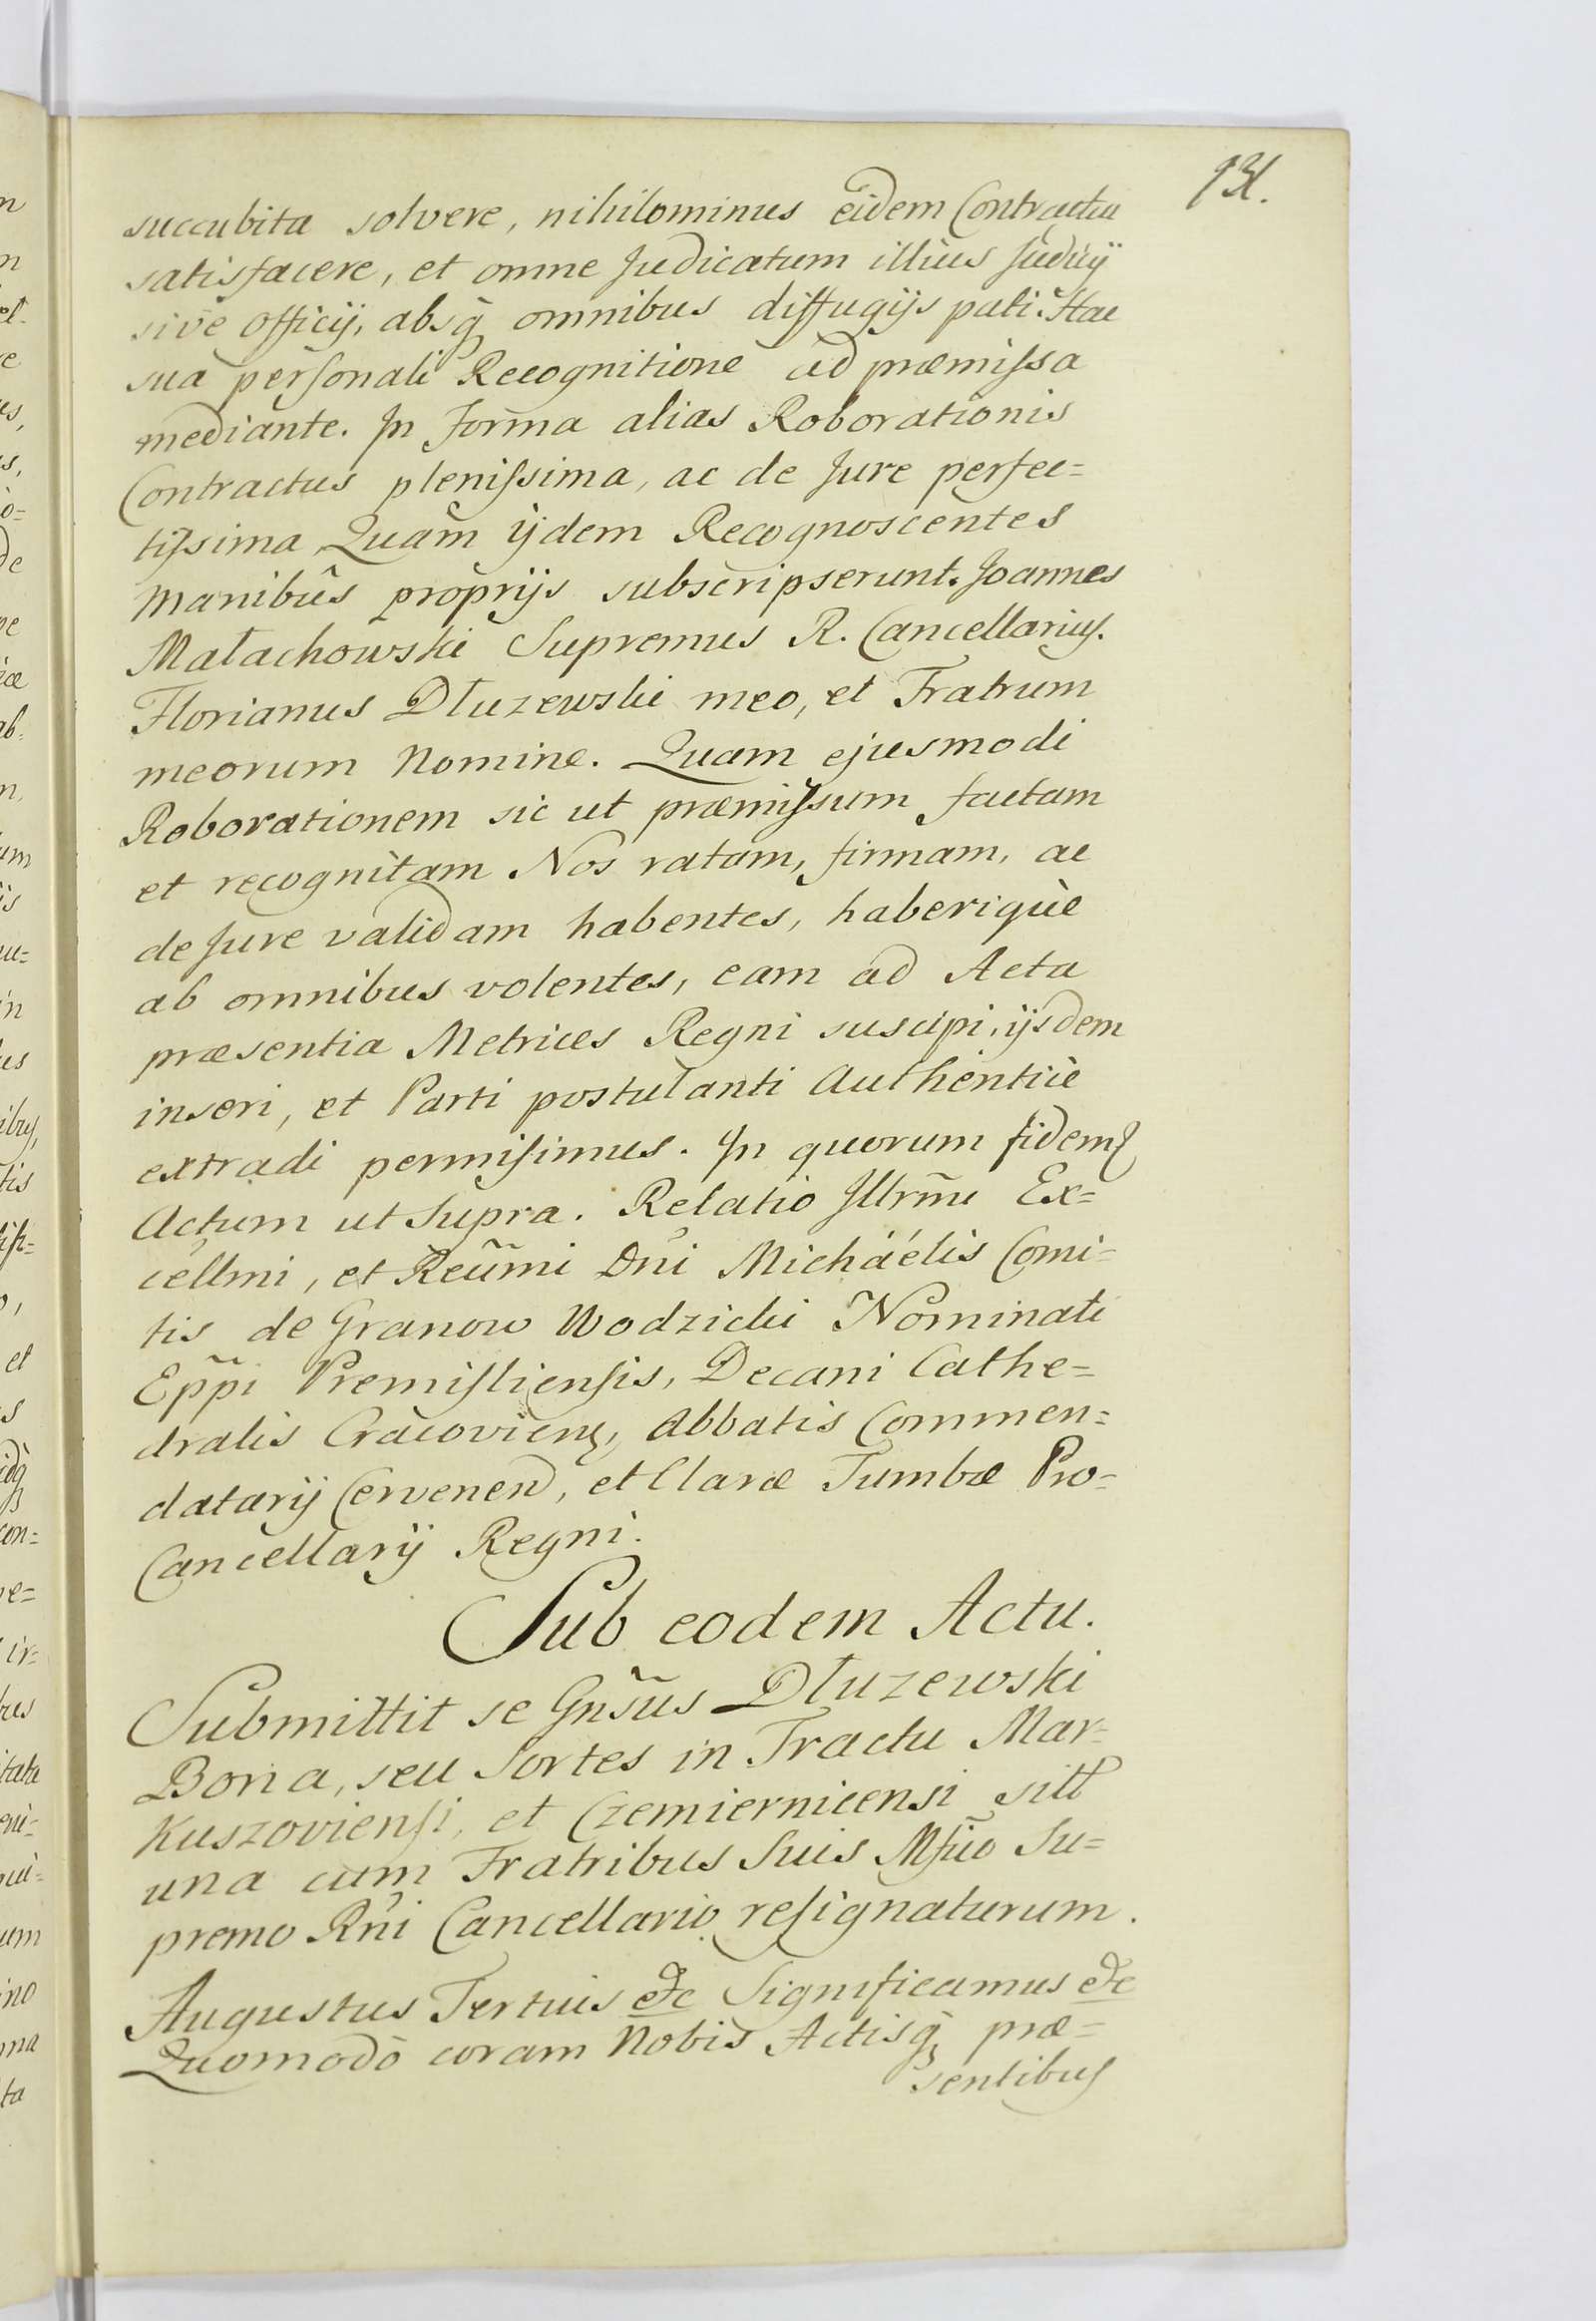 131.
succubita solvere, nihilominus eidem Contractui
satisfacere, et omne Judicatum illius Judicij
sivè officij, absq̀ omnibus diffugijs pati. Hac
suâ personali Recognitione ad præmissa
mediante. In Forma alias Roborationis
Contractus plenissima, ac de Jure perfec=
tissima Quam ijdem Recognoscentes
Manibûs proprijs subscripserunt. Joannes
Małachowski Supremus R. Cancellarius.
Florianus Dłuzewski meo, et Fratrum
meorum Nomine. Quam ejusmodi
Roborationem sic ut præmissum factam
et recognitam Nos ratam, firmam, ac
de Jure validam habentes, haberiquè
ab omnibus volentes, eam ad Acta
præsentia Metrices Regni suscipi, ijsdem
inseri, et Parti postulanti Authenticè
extradi permisimus. In quorum fidem
Actum ut Supra. Relatio Illrm̃i Ex=
cellmi, et Reũmi Dni Michaélis Comi=
tis de Granow Wodzicki Nominati
Epp̃i Premisliensis, Decani Cathe=
dralis Cracoviens, Abbatis Commen=
datarij Cervenen, et Claræ Tumbæ Pro=
Cancellarij Regni.
Sub eodem Actu.
Submittit se Gnsũs Dłuzewski
Bona, seu Sortes in Tractu Mar=
kuszoviensi, et Czemiernicensi sitt
una cum Fratribus Suis Mfico Su=
premo Rni Cancellario resignaturum.
Augustus Tertius &c Significamus &c
Quomodò coram Nobis Actisq̀ præ=
sentibus